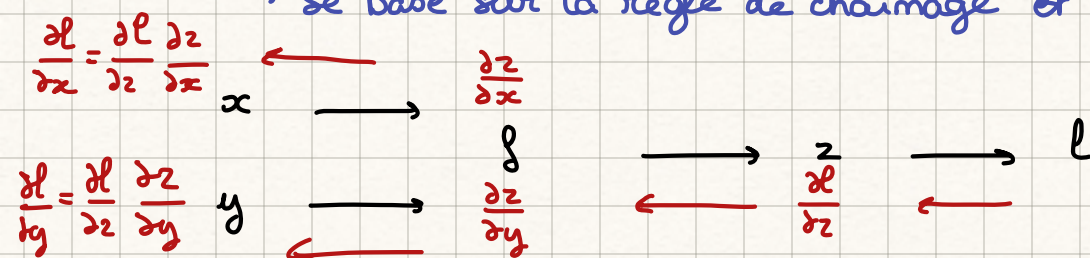 se base sur la règle de chainage et
∂l/∂x = ∂l/∂z ∂z/∂x
∂z/∂x
x
f
z
l
∂l/∂y = ∂l/∂z ∂z/∂y
y
∂z/∂y
∂l/∂z